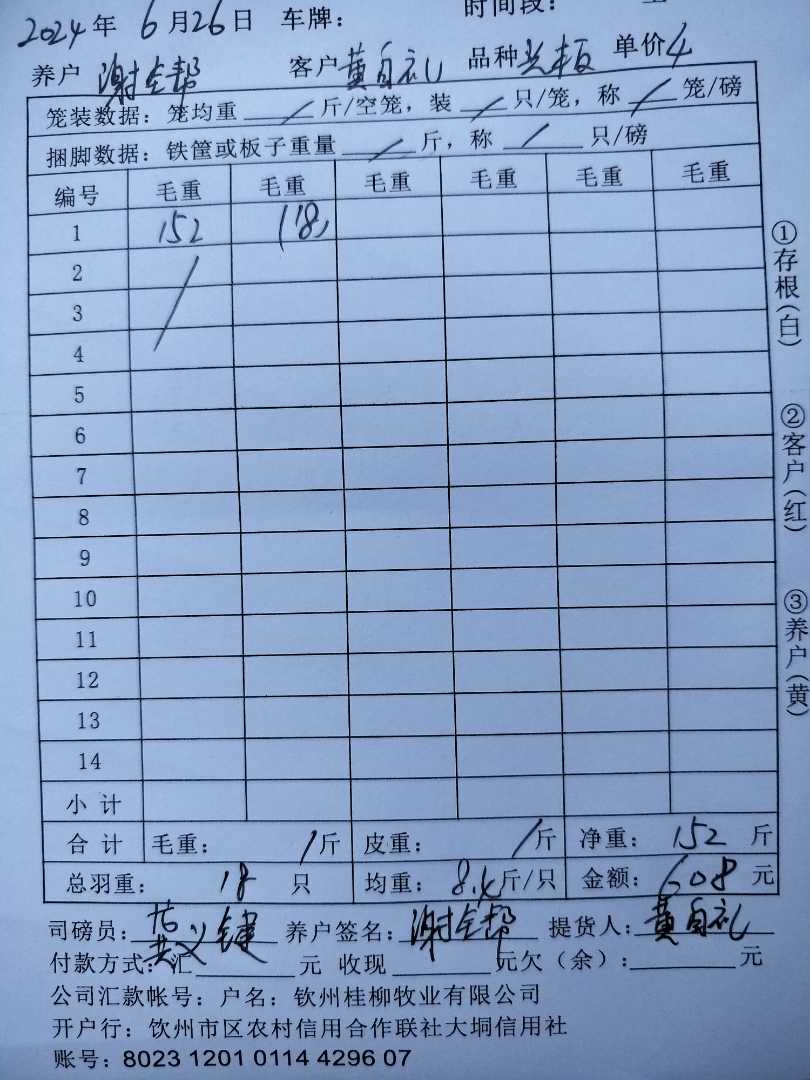 2024年6月26日 车牌： 时间段：
养户 谢全帮 客户 黄自礼 品种 光板 单价 4
笼装数据：笼均重 / 斤/空笼，装 / 只/笼，称 / 笼/磅
捆脚数据：铁筐或板子重量 / 斤，称 / 只/磅
编号 毛重 毛重 毛重 毛重 毛重 毛重
1 152 (18)
2 /
3
4
5
6
7
8
9
10
11
12
13
14
小计
合计 毛重： / 斤 皮重： / 斤 净重：152 斤
总羽重：18 只 均重：8.4 斤/只 金额：608 元
司磅员： 养户签名：谢全帮 提货人：黄自礼
付款方式：汇 元 收现 元欠（余）： 元
公司汇款帐号：户名：钦州桂柳牧业有限公司
开户行：钦州市区农村信用合作联社大垌信用社
账号：8023 1201 0114 4296 07
①存根(白)
②客户(红)
③养户(黄)